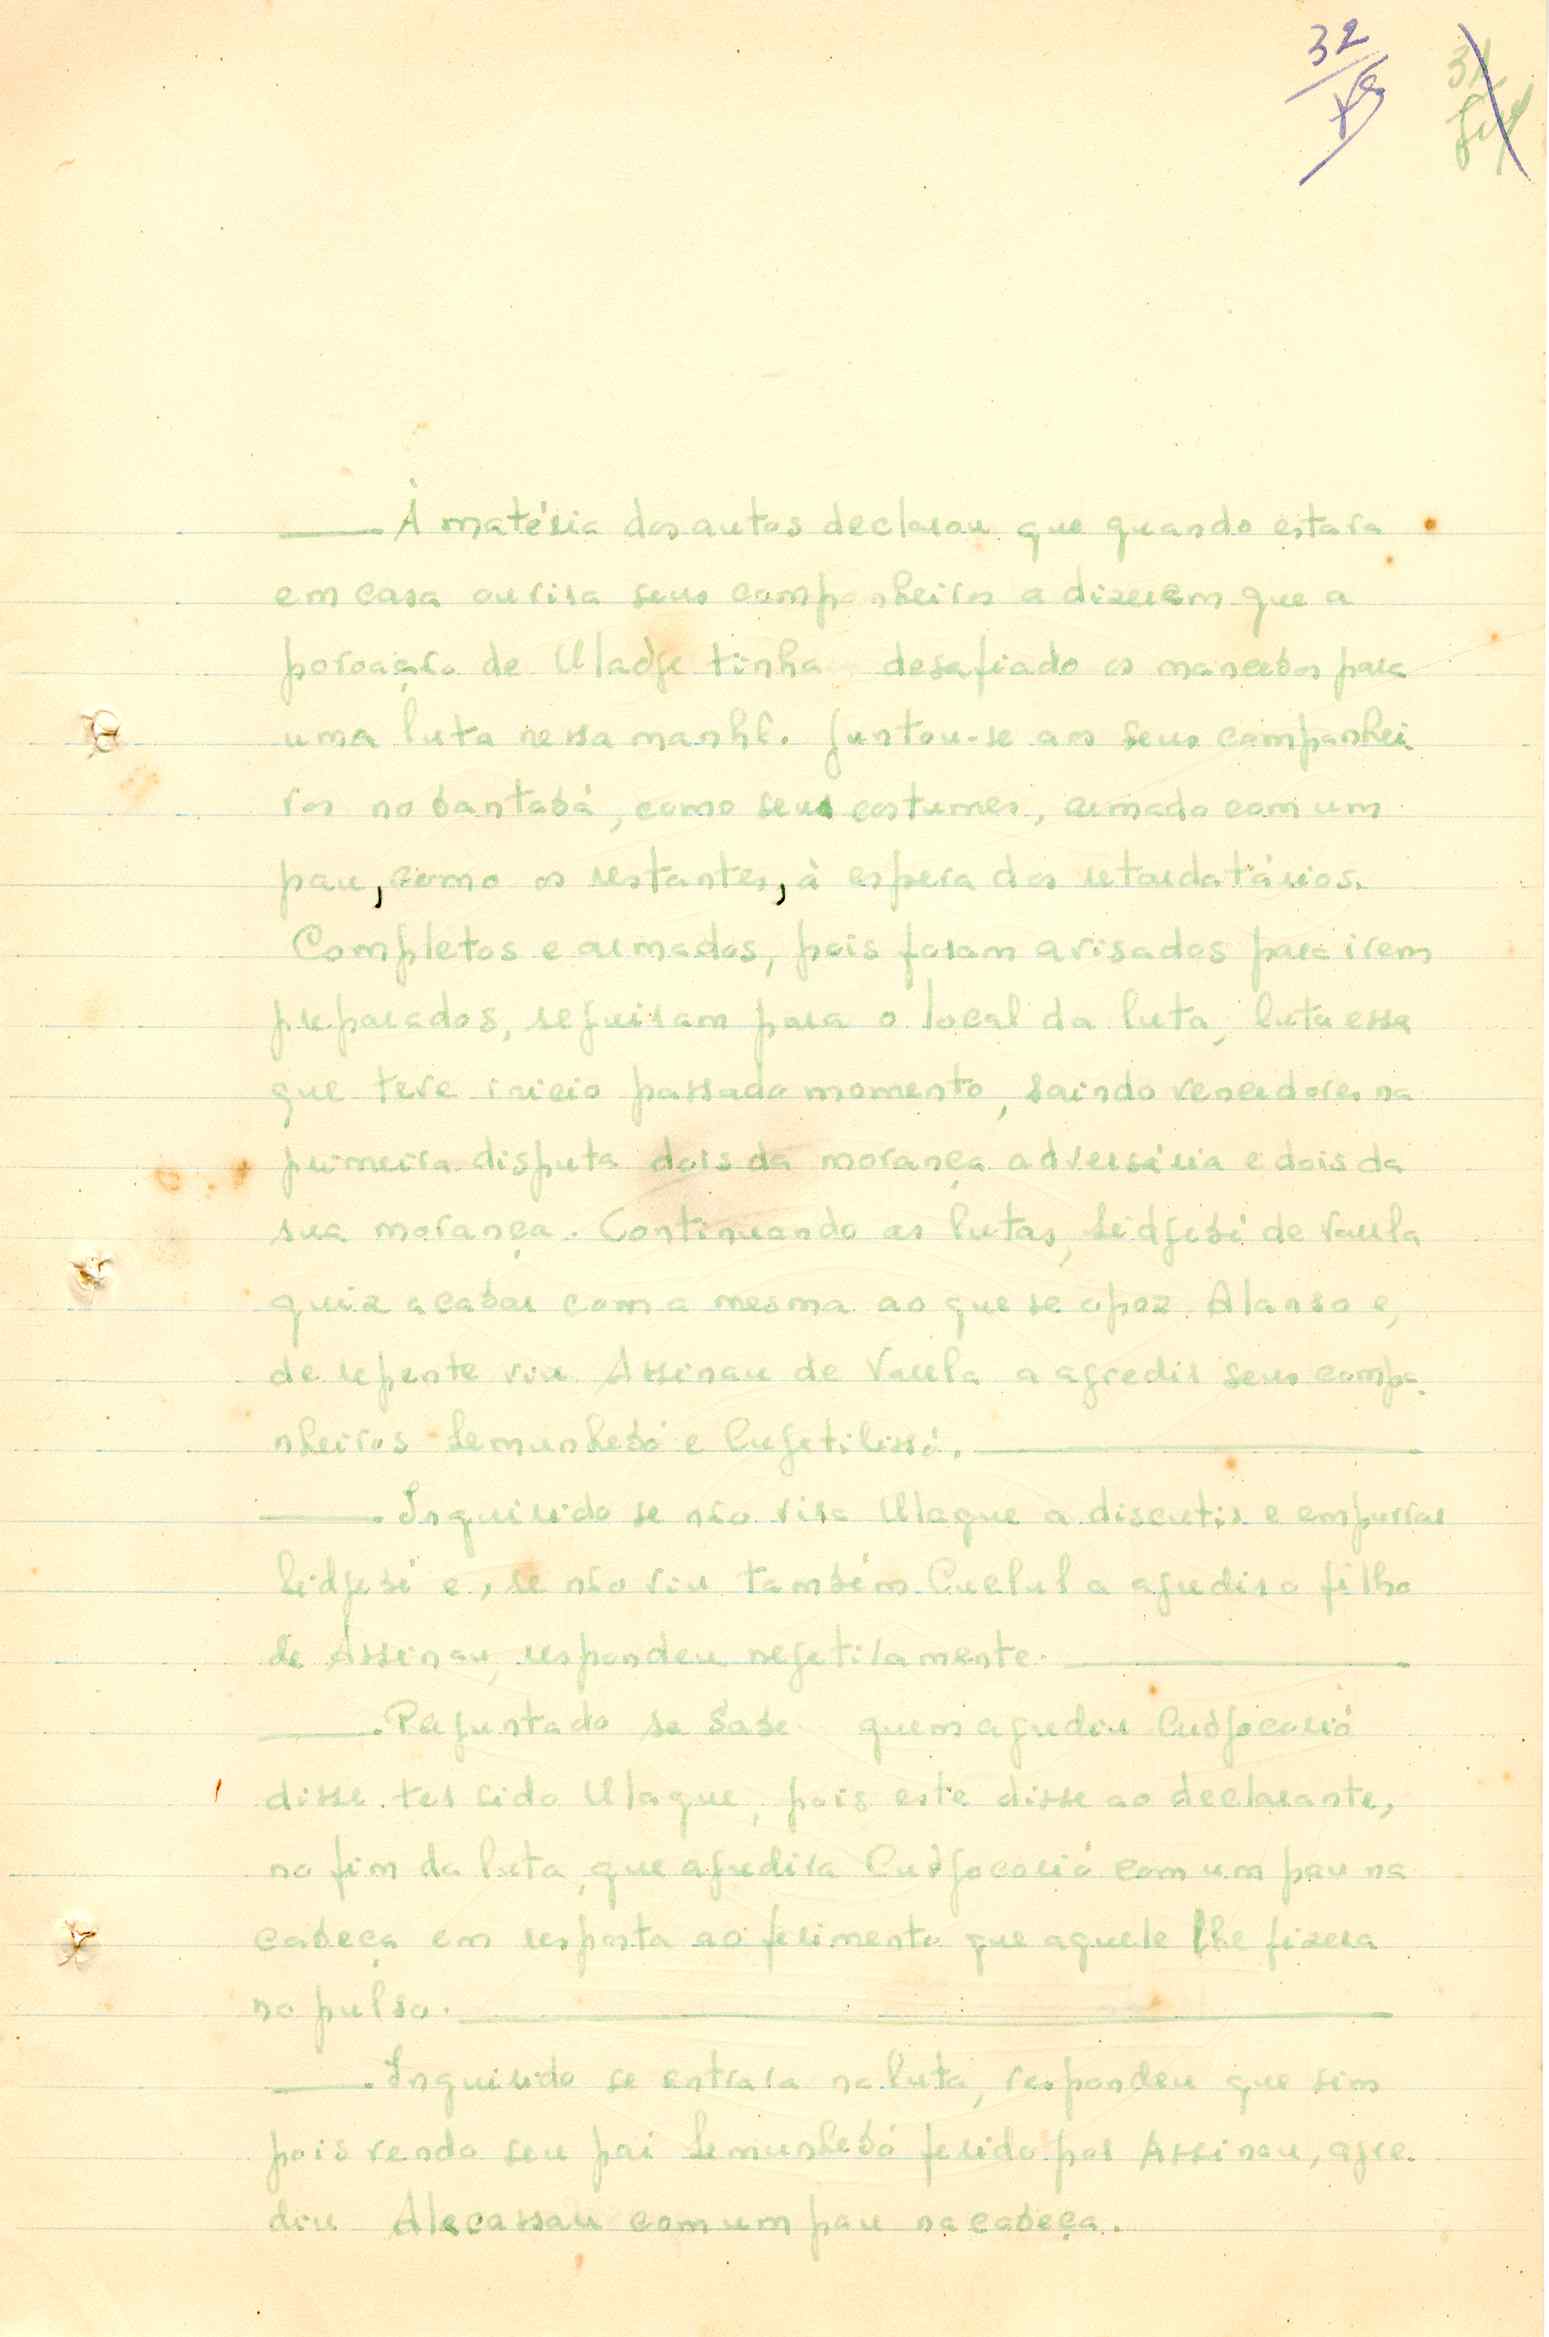 32
31
——. À matéria dos autos declarou que quando estava
em casa ouvira seus companheiros a dizerem que a
povoação de Uladje tinha desafiado os mancebos para
uma luta nessa manhã. Juntou-se aos seus companhei
ros no bantabá, como seus costumes, armado com um
pau, como os restantes, à espera dos retardatários.
Completos e armados, pois foram avisados para irem
preparados, seguiram para o local da luta, luta essa
que teve inicio passado momento, saindo vencedores na
primeira disputa dois da morança adversária e dois da
sua morança. Continuando as lutas, Sidjebi de Varela
quiz acabar com a mesma ao que se opoz Alanso e,
de repente viu Assinau de Varela a agredir seus compa-
nheiros Semunhebó e Cujetilissó. ——
——. Inquirido se não vira Ulaque a discutir e empurrar
Sidjebi e, se não viu também Cuelul a agredir o filho
de Assinau, respondeu negativamente. ——
——. Perguntado se sabe quem agrediu Cudjocorió
disse ter sido Ulaque, pois este disse ao declarante,
no fim da luta, que agredira Cudjocorió com um pau na
cabeça em resposta ao ferimento que aquele lhe fizera
no pulso. ——
——. Inquirido se entrara na luta, respondeu que sim
pois vendo seu pai Semunhebó ferido por Assinau, agre-
diu Alecassau com um pau na cabeça.